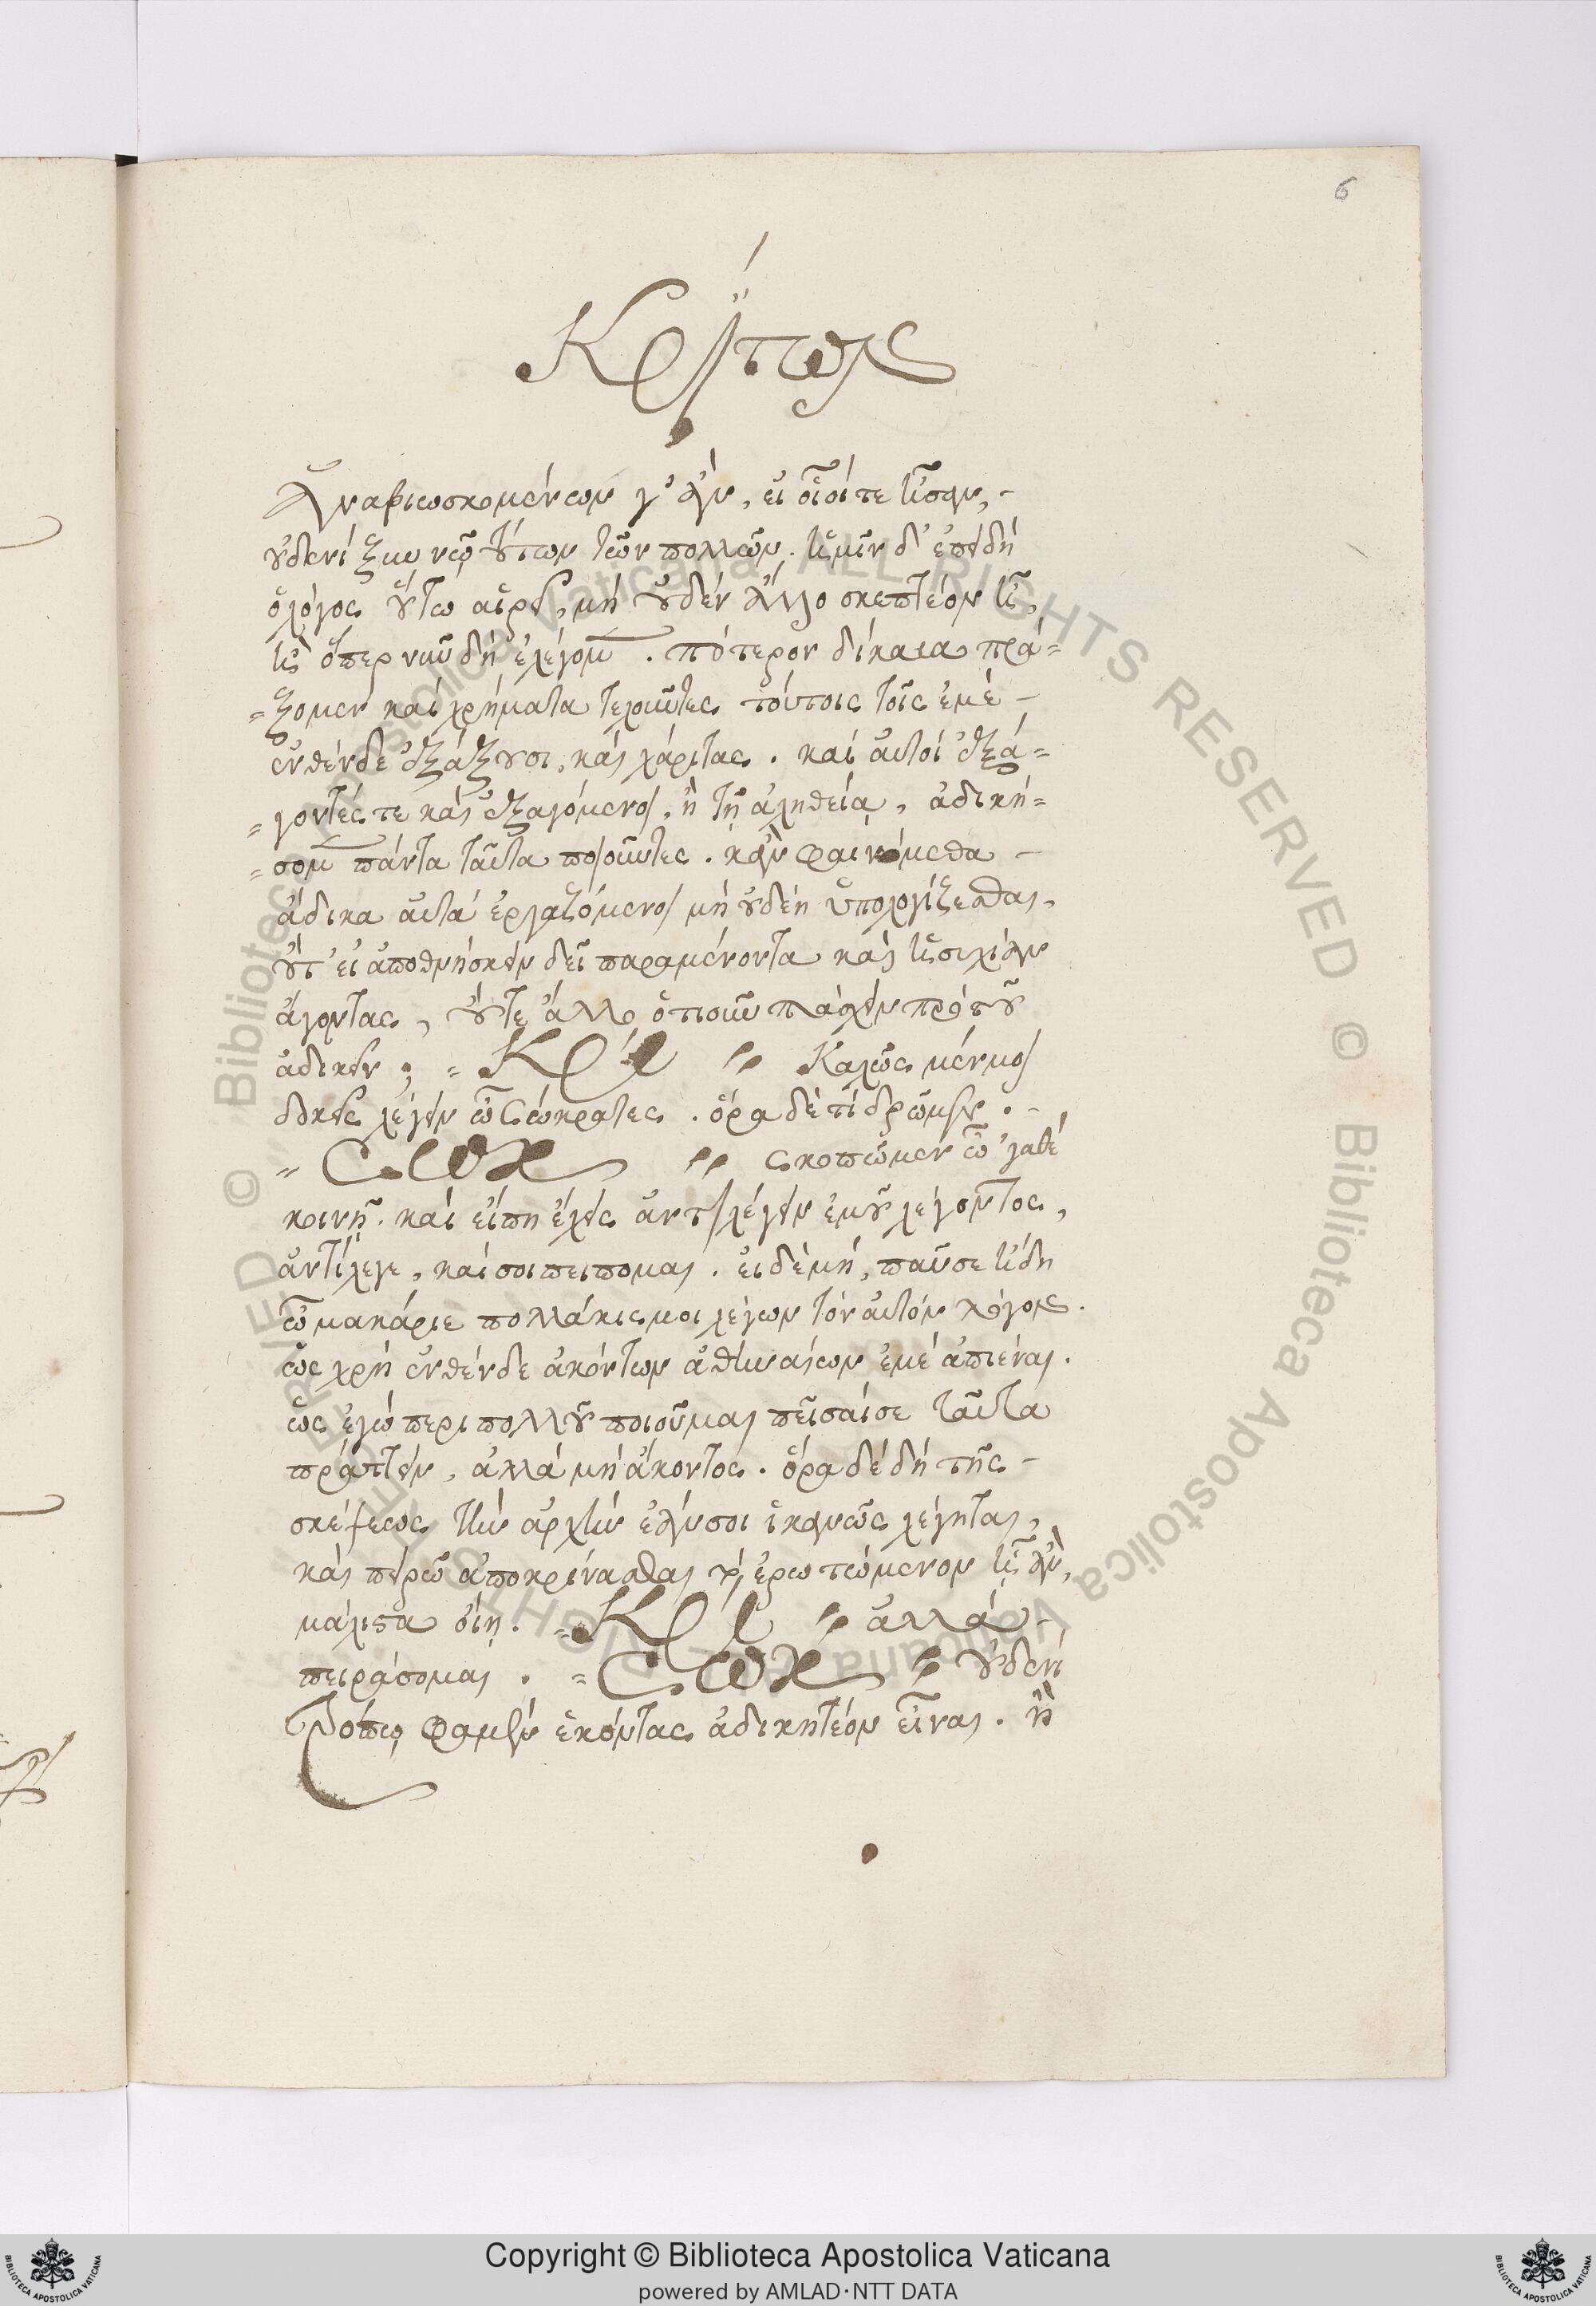 6
Κρίτων
Ἀναβιωσκομένων γ' ἄν, εἰ οἷοί τε ἦσαν,
οὐδενὶ ξὺν νῷ τούτων τῶν πολλῶν. ἡμῖν δ' ἐπειδὴ
ὁ λόγος οὕτω αἱρεῖ, μὴ οὐδὲν ἄλλο σκεπτέον ᾖ,
ἢ ὅπερ νῦν δὴ ἐλέγομεν. πότερον δίκαια πρά=
=ξομεν καὶ χρήματα τελοῦντες τούτοις τοῖς ἐμὲ
ἐνθένδε ἐξάξουσι, καὶ χάριτας. καὶ αὐτοὶ ἐξά=
=γοντές τε καὶ ἐξαγόμενοι, ἢ τῇ ἀληθείᾳ, ἀδική=
=σομεν πάντα ταῦτα ποιοῦντες. κἂν φαινόμεθα
ἄδικα αὐτὰ ἐργαζόμενοι μὴ οὐδέη ὑπολογίζεσθαι,
οὔτ' εἰ ἀποθνήσκειν δεῖ παραμένοντα καὶ ἡσυχίαν
ἄγοντας, οὔτε ἄλλο ὁτιοῦν πάσχειν πρὸ τοῦ
ἀδικεῖν; = ΚΡΙ Καλῶς μέν μοι
δοκεῖς λέγειν ὦ Σώκρατες. ὅρα δὲ τί δρῶμεν.
= ΣΩΚ Σκοπῶμεν ὦ 'γαθὲ
κοινῇ. καὶ εἴ πη ἔχεις ἀντιλέγειν ἐμοῦ λέγοντος,
ἀντίλεγε, καί σοι πείπομαι. εἰ δὲ μή, παῦσε ἤδη
ὦ μακάριε πολλάκις μοι λέγων τὸν αὐτὸν λόγον.
ὡς χρὴ ἐνθένδε ἀκόντων ἀθηναίων ἐμὲ ἀπιέναι.
ὡς ἐγὼ περὶ πολλοῦ ποιοῦμαι πεῖσαί σε ταῦτα
πράττειν, ἀλλὰ μὴ ἄκοντος. ὅρα δὲ δὴ τῆς
σκέψεως τὴν ἀρχὴν ἐάν σοι ἱκανῶς λέγηται,
καὶ πειρῶ ἀποκρίνασθαι τὸ ἐρωτώμενον ᾗ ἂν
μάλιστα οἴῃ. = ΚΡΙ ἀλλὰ
πειράσομαι. = ΣΩΚ οὐδενὶ
τρόπῳ φαμὲν ἑκόντας ἀδικητέον εἶναι. ἢ
Copyright © Biblioteca Apostolica Vaticana
powered by AMLAD·NTT DATA